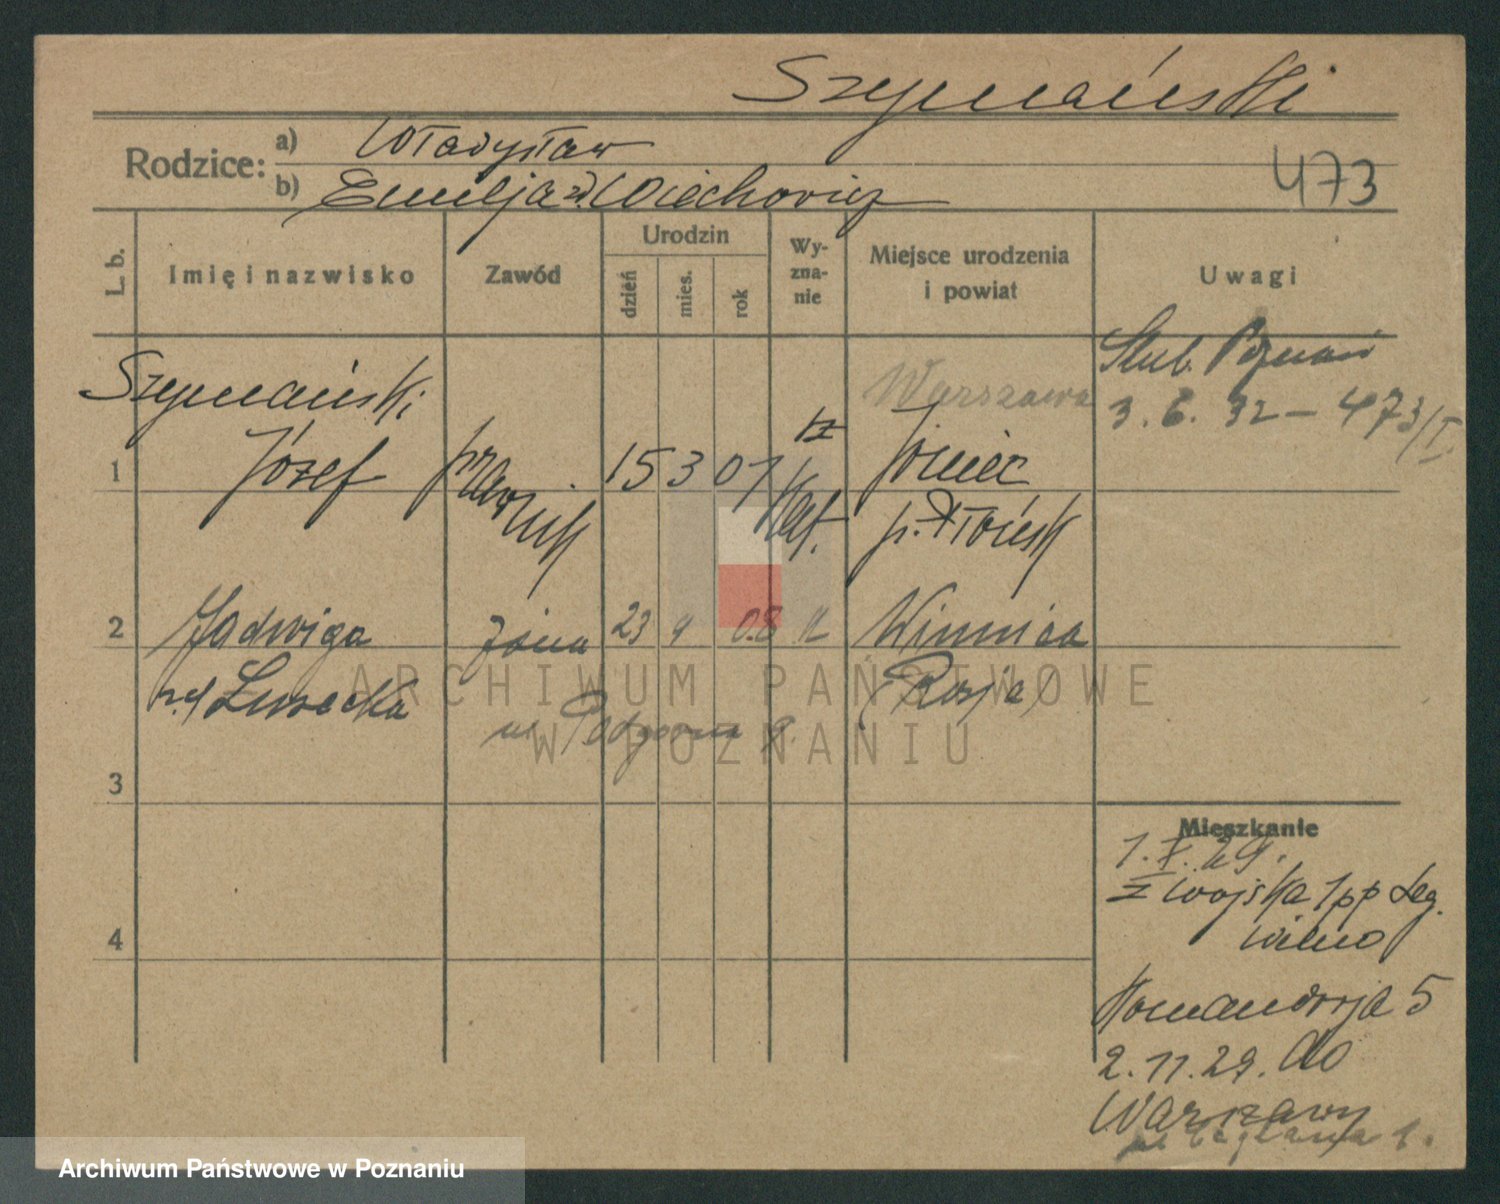 Szymański
Rodzice: a) Władysław
b) Emilja z d. Wiechowicz
473
L. b.
Imię i nazwisko
Zawód
Urodzin
dzień
mies.
rok
Wy-
zna-
nie
Miejsce urodzenia
i powiat
Uwagi
Szymański
1 Józef
prawnik
15 3 07
rz
kat.
Warszawa
Joniec
p. Płońsk
Ślub. Poznań
3. 6. 32 – 473/I.
2 Jadwiga
żona
23 9 08
Winnica
(Rosja)
z d. Łusecka
ul. Podgórna 9.
3
4
Mieszkanie
1. X. 29.
z wojska 1 pp Leg.
Wilno
Komandorja 5
2. 11. 29. do
Warszawy
ARCHIWUM PAŃSTWOWE
W POZNANIU
Archiwum Państwowe w Poznaniu